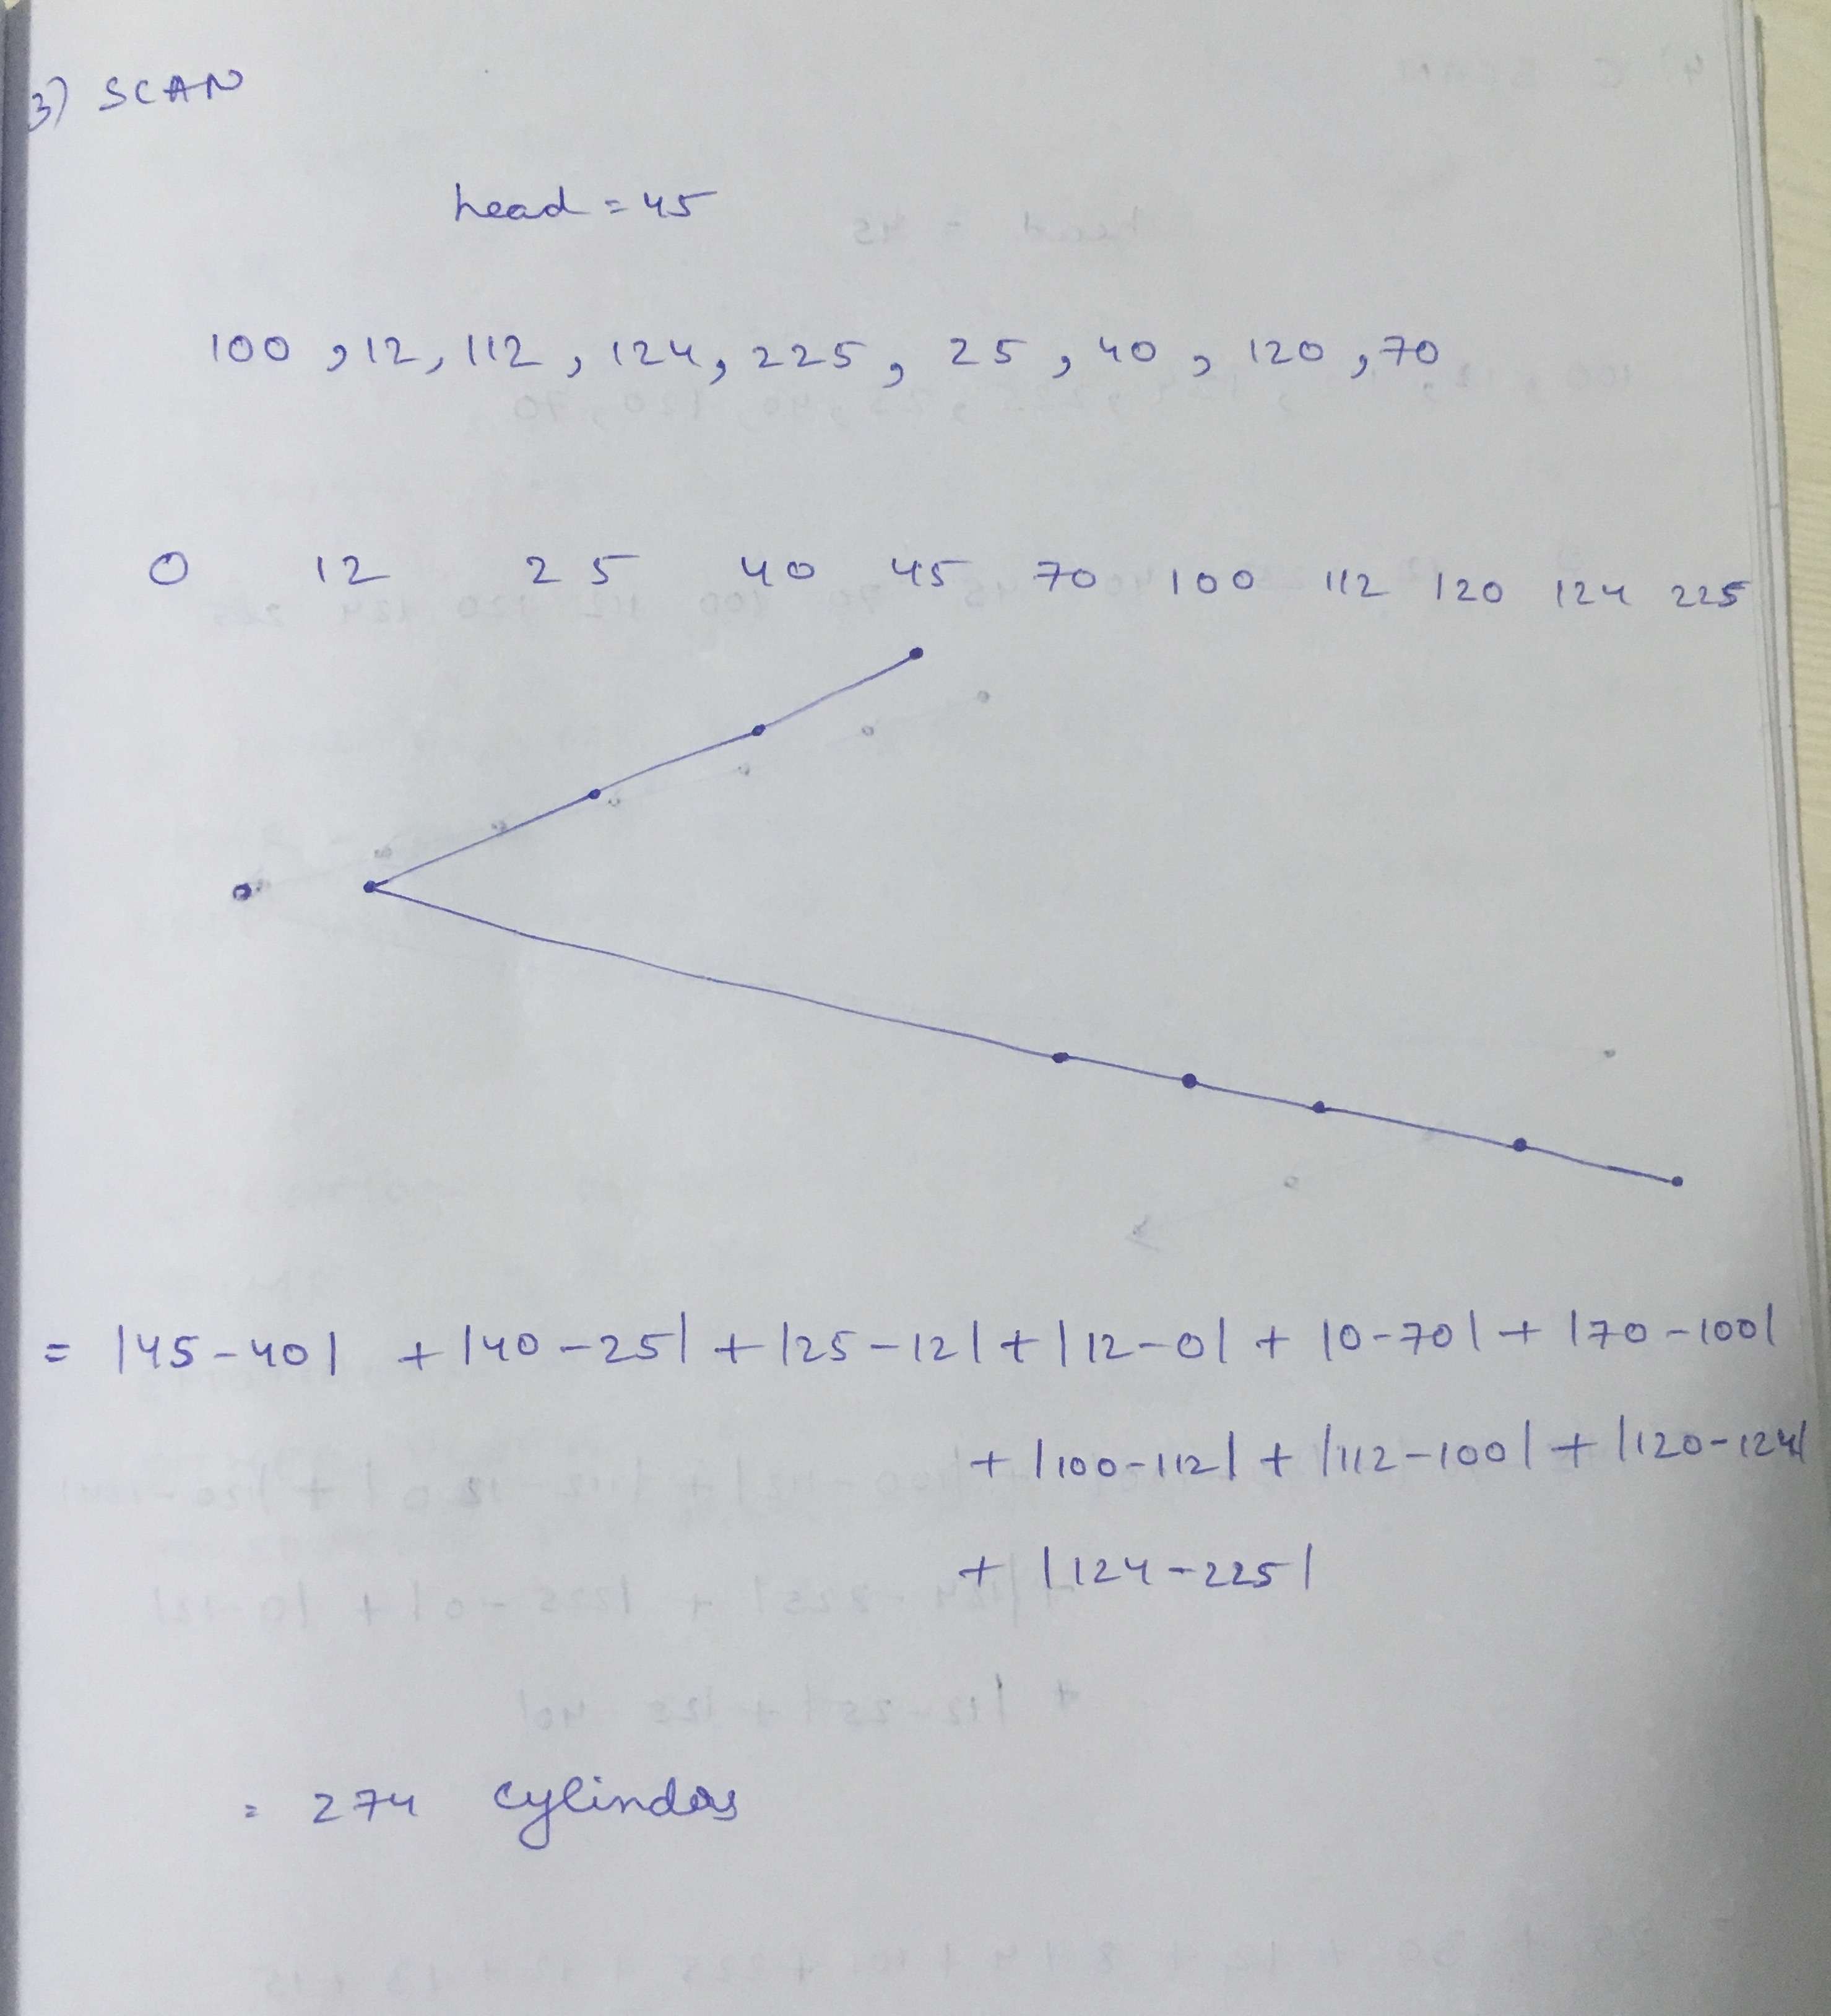 3) SCAN
head = 45
100 , 12 , 112 , 124 , 225 , 25 , 40 , 120 , 70
0 12 25 40 45 70 100 112 120 124 225
= |45-40| + |40-25| + |25-12| + |12-0| + |0-70| + |70-100|
+ |100-112| + |112-100| + |120-124|
+ |124-225|
= 274 cylinders